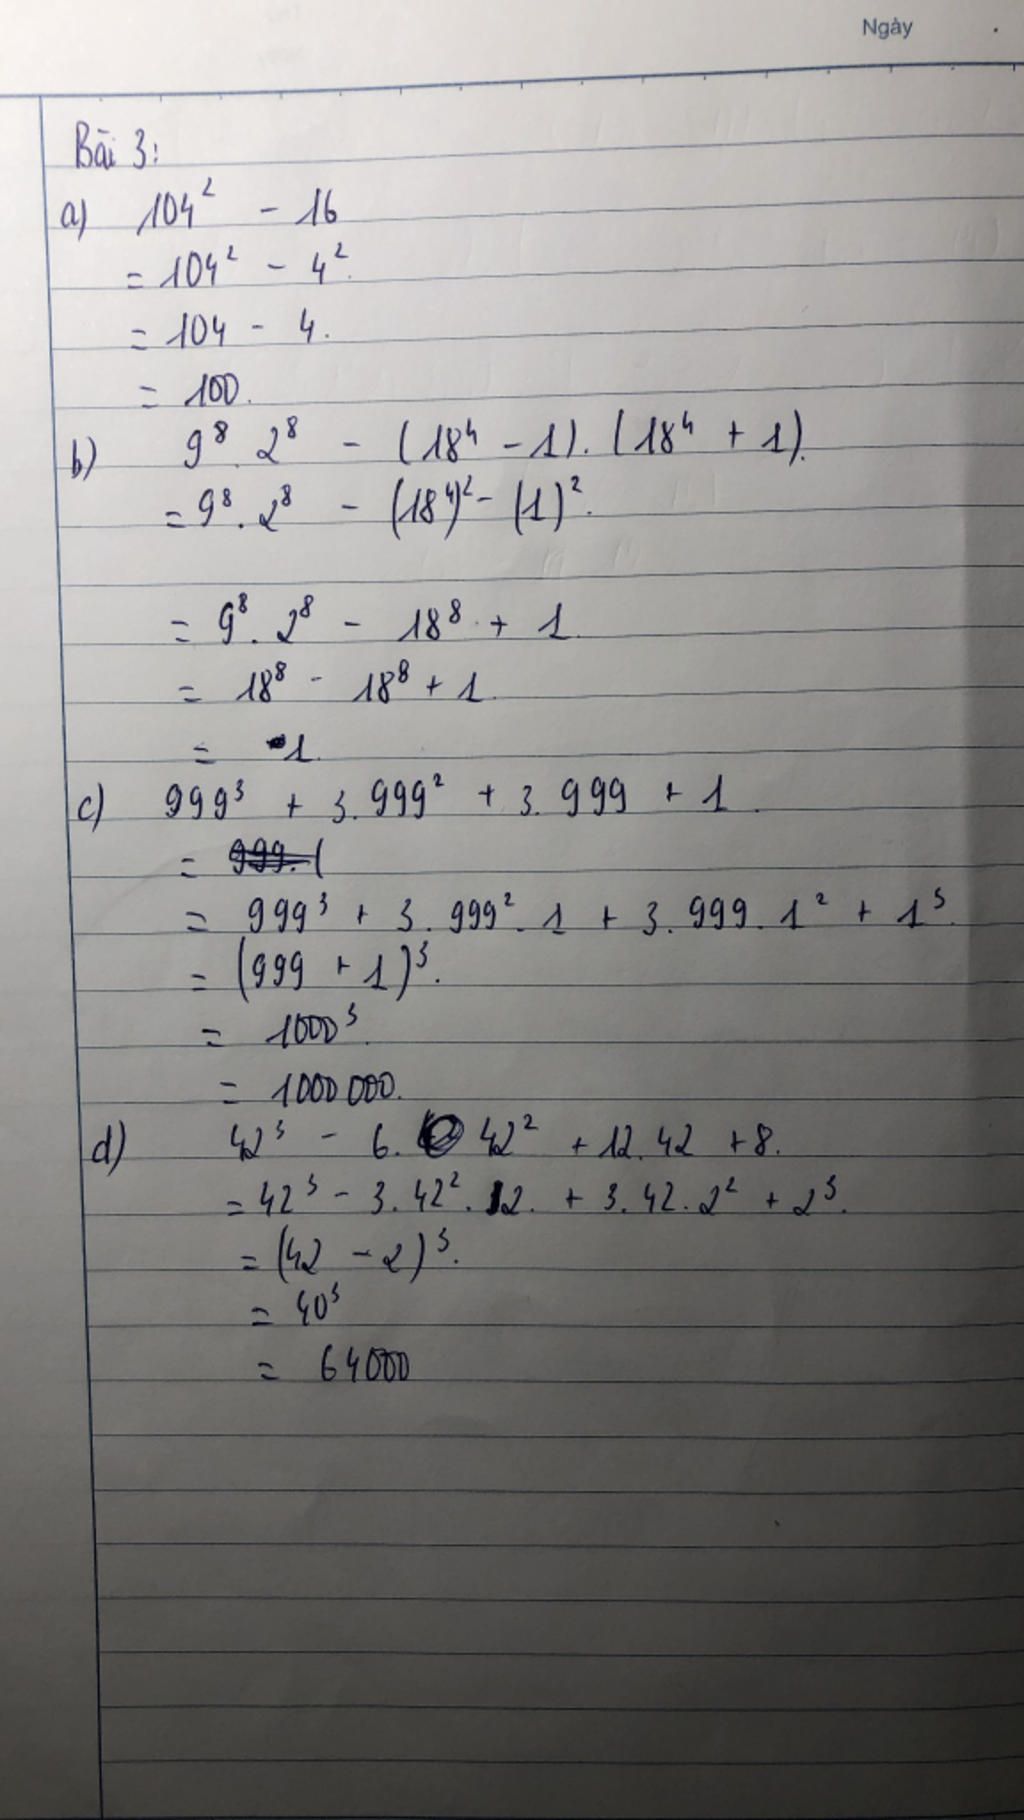 Ngày
Bài 3:
a) 104² - 16
= 104² - 4².
= 104 - 4.
= 100.
b) 9⁸. 2⁸ - (18⁴ - 1). (18⁴ + 1).
= 9⁸. 2⁸ - (18⁴)² - (1)².
= 9⁸. 2⁸ - 18⁸ + 1
= 18⁸ - 18⁸ + 1
= 1.
c) 999³ + 3. 999² + 3. 999 + 1.
= 999. (
= 999³ + 3. 999². 1 + 3. 999. 1² + 1³.
= (999 + 1)³.
= 1000³.
= 1000 000.
d) 42³ - 6. 42² + 12. 42 + 8.
= 42³ - 3. 42². 2. + 3. 42. 2² + 2³.
= (42 - 2)³.
= 40³
= 64000